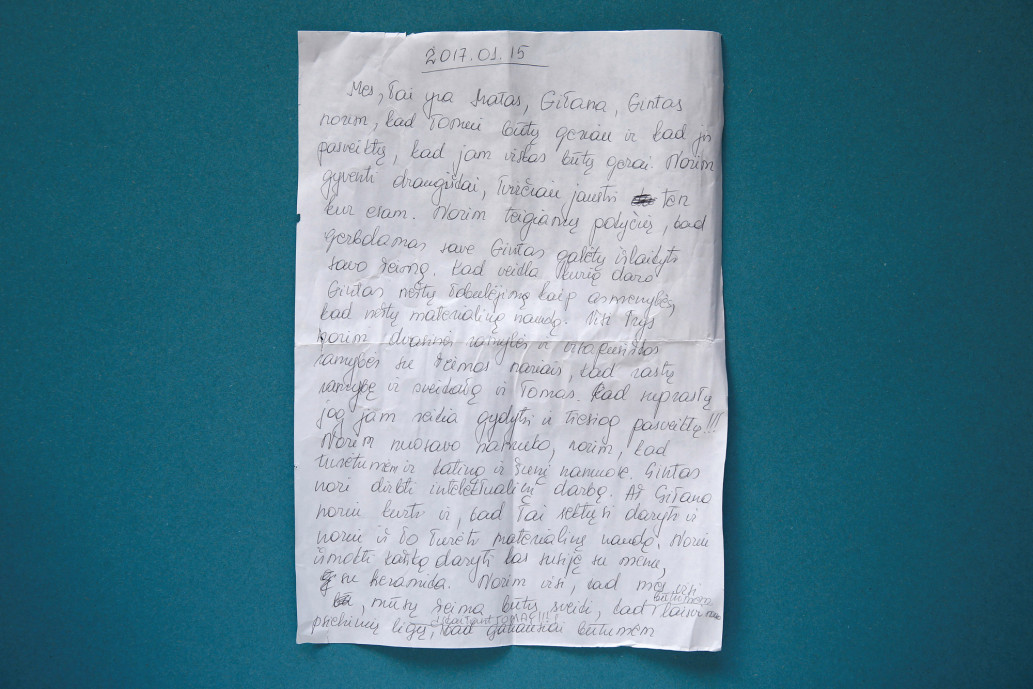 2017.01.15
Mes, tai yra Matas, Gitana, Gintas
norim, kad Tomui būtų geriau ir kad jis
pasveiktų, kad jam viskas būtų gerai. Norim
gyventi draugiškai, tvirčiau jaustis ten
kur esam. Norim teigiamų pokyčių, kad
gerbdamas save Gintas galėtų išlaikyti
savo šeimą. Kad veikla kurią daro
Gintas neštų tobulėjimą kaip asmenybės,
kad neštų materialinę naudą. Visi trys
norim dvasinės ramybės ir visapusiškos
ramybės su šeimos nariais, kad rastų
ramybę ir sveikatą ir Tomas. Kad suprastų
jog jam reikia gydytis ir tiesiog pasveiktų!!!
Norim nuosavo namuko, norim, kad
turėtumėm ir katiną ir šunį namuose. Gintas
nori dirbti intelektualinį darbą. Aš Gitana
noriu kurti ir, kad tai sektųsi daryti ir
noriu iš to turėti materialinę naudą. Noriu
išmokti kažką daryti kas susiję su menu,
su keramika. Norim visi, kad mes visi
, mūsų šeima būtų sveiki, kad būtumėm laisvi nuo
psichinių ligų, įskaitant TOMĄ!!! kad galiausiai būtumėm